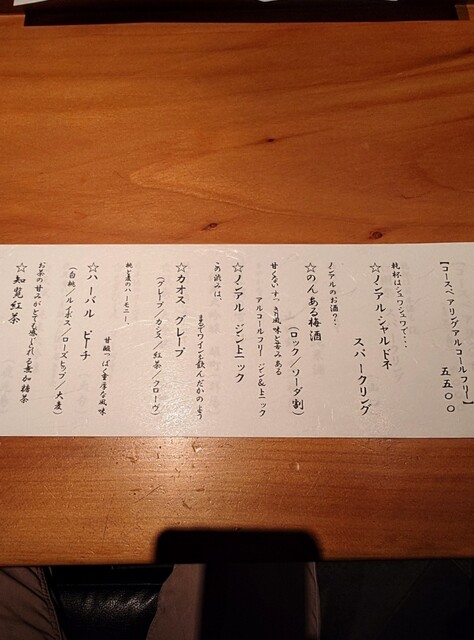 【コースペアリングアルコールフリー】
五五〇〇
乾杯はシュワシュワで・・・
☆ノンアル・シャルドネ
スパークリング
ノンアルのお酒の？・・
☆のんある梅酒
（ロック／ソーダ割）
アルコールフリー ジン&トニック
☆ノンアル ジントニック
この渋みは、
まるでワインを飲んだかのよう
☆カオス グレープ
（グレープ／カシス／紅茶／クローヴ）
桃と麦のハーモニー、
甘酸っぱく重厚な風味
☆ハーバル ピーチ
（白桃／ルイボス／ローズヒップ／大麦）
お茶の甘みがとても感じれる無加糖茶
☆知覧紅茶